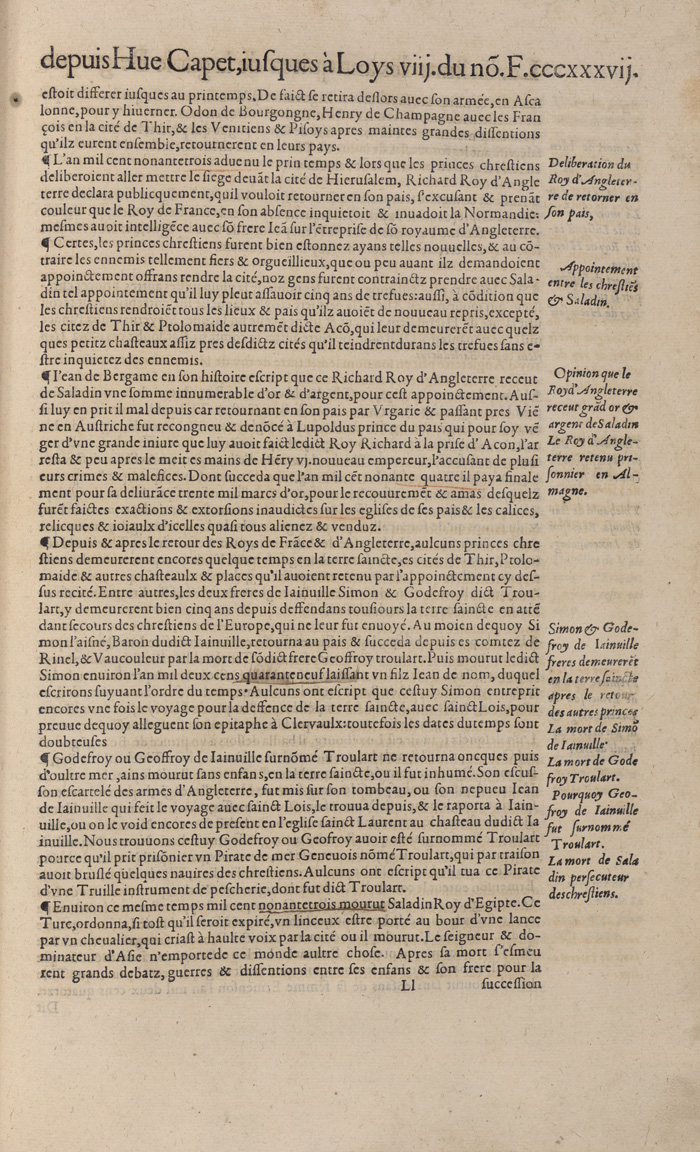 depuis Hue Capet, iusques à Loys viij. du nõ. F. cccxxxvij.
estoit differer iusques au printemps. De faict se retira deslors auec son armée, en Asca
lonne, pour y hiuerner. Odon de Bourgongne, Henry de Champagne auec les Fran
çois en la cité de Thir, & les Venitiens & Pisoys apres maintes grandes dissentions
qu'ilz eurent ensemble, retournerent en leurs pays.
¶ L'an mil cent nonantetrois aduenu le prin temps & lors que les princes chrestiens
deliberoient aller mettre le siege deuãt la cité de Hierusalem, Richard Roy d'Angle
terre declara publicquement, quil vouloit retourner en son pais, s'excusant & prenãt
couleur que le Roy de France, en son absence inquietoit & inuadoit la Normandie:
mesmes auoit intelligẽce auec sõ frere Ieã sur l'ẽtreprise de sõ royaume d'Angleterre.
¶ Certes, les princes chrestiens furent bien estonnez ayans telles nouuelles, & au cõ-
traire les ennemis tellement fiers & orgueillieux, que ou peu auant ilz demandoient
appoinctement offrans rendre la cité, noz gens furent contrainctz prendre auec Sala-
din tel appointement qu'il luy pleut assauoir cinq ans de trefues: aussi, à cõdition que
les chrestiens rendroiẽt tous les lieux & pais qu'ilz auoiẽt de nouueau repris, excepté,
les citez de Thir & Ptolomaide autremẽt dicte Acõ, qui leur demeurerẽt auec quelz
ques petitz chasteaux assiz pres desdictz cités qu'il teindrent durans les trefues sans e-
stre inquietez des ennemis.
¶ Iean de Bergame en son histoire escript que ce Richard Roy d'Angleterre receut
de Saladin vne somme innumerable d'or & d'argent, pour cest appoinctement. Aus-
si luy en prit il mal depuis car retournant en son pais par Vrgarie & passãt pres Viẽ
ne en Austriche fut recongneu & denõcé à Lupoldus prince du pais qui pour soy vẽ
ger d'vne grande iniure que luy auoit faict ledict Roy Richard à la prise d'Acon, l'ar
resta & peu apres le meit es mains de Hẽry vj. nouueau empereur, l'accusant de plusi
eurs crimes & malefices. Dont succeda que l'an mil cẽt nonante quatre il paya finale
ment pour sa deliurãce trente mil marcs d'or, pour le recouuremẽt & amas desquelz
furẽt faictes exactions & extorsions inaudictes sur les eglises de ses pais & les calices,
relicques & ioiaulx d'icelles quasi tous alienez & venduz.
¶ Depuis & apres le retour des Roys de Frãce & d'Angleterre, aulcuns princes chre
stiens demeurerent encores quelque temps en la terre saincte, es cités de Thir, Ptolo-
maide & autres chasteaulx & places qu'il auoient retenu par l'appoinctement cy des-
sus recité. Entre autres, les deux freres de Iainuille Simon & Godefroy dict Trou-
lart, y demeurerent bien cinq ans depuis deffendans tousiours la terre saincte en attẽ
dant secours des chrestiens de l'Europe, qui ne leur fut enuoyé. Au moien dequoy Si
mon l'aisné, Baron dudict Iainuille, retourna au pais & succeda depuis es comtez de
Rinel, & Vaucouleur par la mort de sõdict frere Geoffroy troulart. Puis mourut ledict
Simon enuiron l'an mil deux cens quaranteneuf laissant vn filz Iean de nom, duquel
escrirons suyuant l'ordre du temps. Aulcuns ont escript que cestuy Simon entreprit
encores vne fois le voyage pour la deffence de la terre saincte, auec sainct Lois, pour
preuue dequoy alleguent son epitaphe à Clervaulx: toutefois les dates du temps sont
doubteuses
¶ Godefroy ou Geoffroy de Iainuille surnõmé Troulart ne retourna oncques puis
d'oultre mer, ains mourut sans enfans, en la terre saincte, ou il fut inhumé. Son escus-
son escartelé des armes d'Angleterre, fut mis sur son tombeau, ou son nepueu Iean
de Iainuille qui feit le voyage auec sainct Lois, le trouua depuis, & le raporta à Iain-
uille, ou on le void encores de present en l'eglise sainct Laurent au chasteau dudict Ia
inuille. Nous trouuons cestuy Godefroy ou Geofroy auoir esté surnommé Troulart
pource qu'il prit prisõnier vn Pirate de mer Geneuois nõmé Troulart, qui par traison
auoit bruslé quelques nauires des chrestiens. Aulcuns ont escript qu'il tua ce Pirate
d'vne Truille instrument de pescherie, dont fut dict Troulart.
¶ Enuiron ce mesme temps mil cent nonantetrois mourut Saladin Roy d'Egipte. Ce
Turc, ordonna, si tost qu'il seroit expiré, vn linceux estre porté au bour d'vne lance
par vn cheualier, qui criast à haulte voix par la cité ou il mourut. Le seigneur & do-
minateur d'Asie n'emporte de ce monde aultre chose. Apres sa mort s'esmeu
rent grands debatz, guerres & dissentions entre ses enfans & son frere pour la
Ll succession
Deliberation du
Roy d'Angleter-
re de retorner en
son pais,
Appointement
entre les chrestiẽs
& Saladin.
Opinion que le
Roy d'Angleterre
receut grãd or &
argent de Saladin
Le Roy d'Angle-
terre retenu pri-
sonnier en Al-
magne.
Simon & Gode-
froy de Iainuille
freres demeurerẽt
en la terre saincte
apres le retour
des autres princes
La mort de Simõ
de Iainuille.
La mort de Gode
froy Troulart.
Pourquoy Geo-
froy de Iainuille
fut surnommé
Troulart.
La mort de Sala
din persecuteur
des chrestiens.